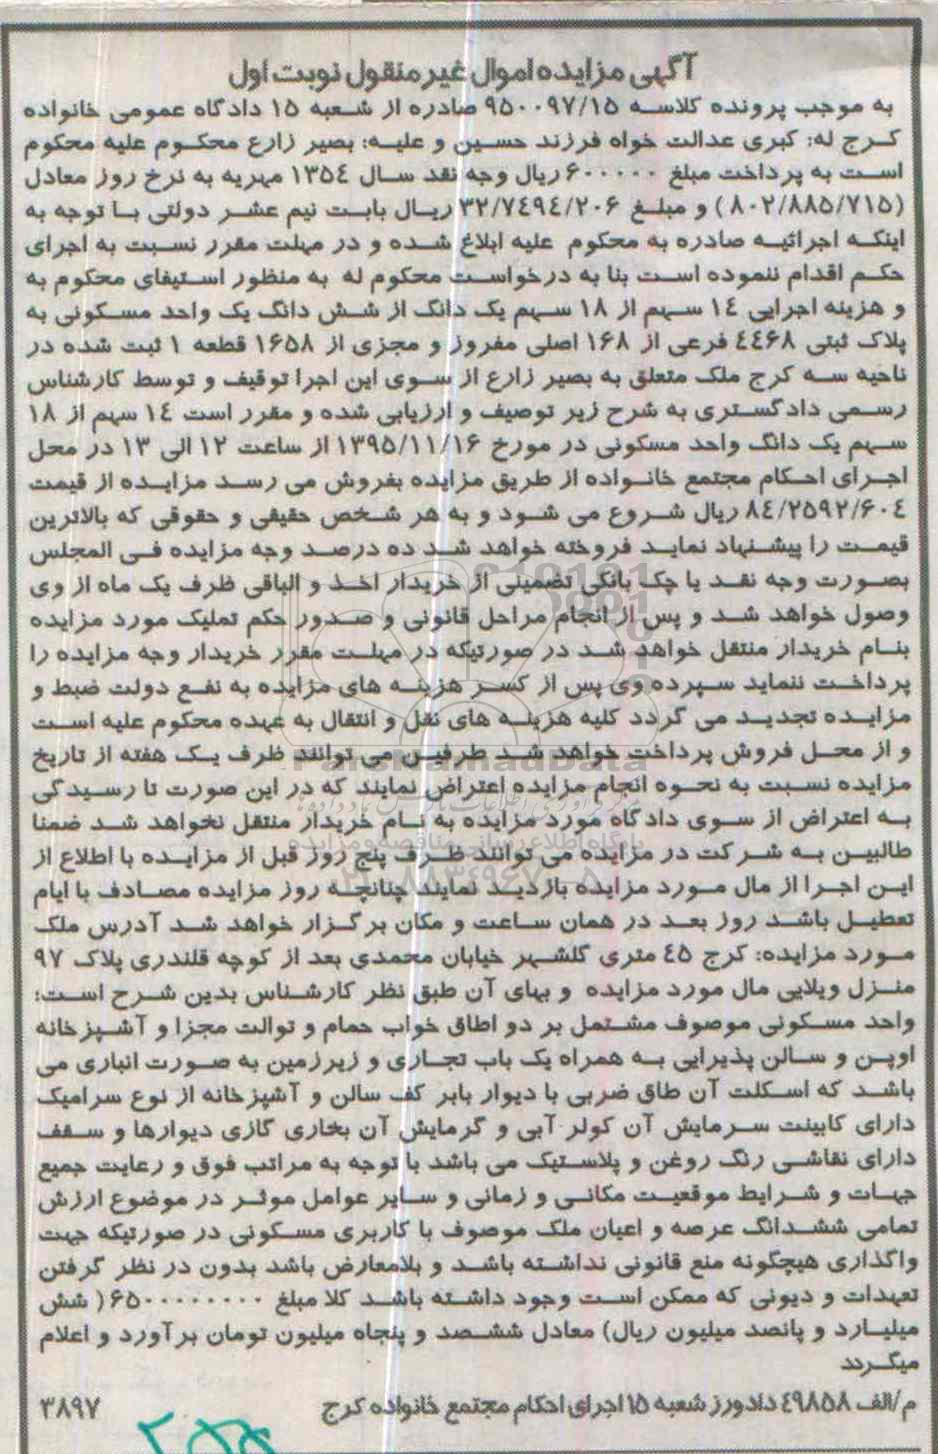 آگهی مزایده اموال غیرمنقول نوبت اول
به موجب پرونده کلاسه ۹۵۰۰۹۷/۱۵ صادره از شعبه ۱۵ دادگاه عمومی خانواده
کرج له: کبری عدالت خواه فرزند حسین و علیه: بصیر زارع محکوم علیه محکوم
است به پرداخت مبلغ ۶۰۰۰۰۰ ریال وجه نقد سال ۱۳۵۴ مهریه به نرخ روز معادل
(۸۰۲/۸۸۵/۷۱۵) و مبلغ ۳۲/۷٤۹٤/۲۰۶ ریال بابت نیم عشر دولتی با توجه به
اینکه اجرائیه صادره به محکوم علیه ابلاغ شده و در مهلت مقرر نسبت به اجرای
حکم اقدام ننموده است بنا به درخواست محکوم له به منظور استیفای محکوم به
و هزینه اجرایی ۱٤ سهم از ۱۸ سهم یک دانگ از شش دانگ یک واحد مسکونی به
پلاک ثبتی ٤٤۶۸ فرعی از ۱۶۸ اصلی مفروز و مجزی از ۱۶۵۸ قطعه ۱ ثبت شده در
ناحیه سه کرج ملک متعلق به بصیر زارع از سوی این اجرا توقیف و توسط کارشناس
رسمی دادگستری به شرح زیر توصیف و ارزیابی شده و مقرر است ۱٤ سهم از ۱۸
سهم یک دانگ واحد مسکونی در مورخ ۱۳۹۵/۱۱/۱۶ از ساعت ۱۲ الی ۱۳ در محل
اجرای احکام مجتمع خانواده از طریق مزایده بفروش می رسد مزایده از قیمت
۸٤/۲۵۹۲/۶۰٤ ریال شروع می شود و به هر شخص حقیقی و حقوقی که بالاترین
قیمت را پیشنهاد نماید فروخته خواهد شد ده درصد وجه مزایده فی المجلس
بصورت وجه نقد یا چک بانکی تضمینی از خریدار اخذ و الباقی ظرف یک ماه از وی
وصول خواهد شد و پس از انجام مراحل قانونی و صدور حکم تملیک مورد مزایده
بنام خریدار منتقل خواهد شد در صورتیکه در مهلت مقرر خریدار وجه مزایده را
پرداخت ننماید سپرده وی پس از کسر هزینه های مزایده به نفع دولت ضبط و
مزایده تجدید می گردد کلیه هزینه های نقل و انتقال به عهده محکوم علیه است
و از محل فروش پرداخت خواهد شد طرفین می توانند ظرف یک هفته از تاریخ
مزایده نسبت به نحوه انجام مزایده اعتراض نمایند که در این صورت تا رسیدگی
به اعتراض از سوی دادگاه مورد مزایده به نام خریدار منتقل نخواهد شد ضمنا
طالبین به شرکت در مزایده می توانند ظرف پنج روز قبل از مزایده با اطلاع از
این اجرا از مال مورد مزایده بازدید نمایند چنانچه روز مزایده مصادف با ایام
تعطیل باشد روز بعد در همان ساعت و مکان برگزار خواهد شد آدرس ملک
مورد مزایده: کرج ٤۵ متری گلشهر خیابان محمدی بعد از کوچه قلندری پلاک ۹۷
منزل ویلایی مال مورد مزایده و بهای آن طبق نظر کارشناس بدین شرح است:
واحد مسکونی موصوف مشتمل بر دو اطاق خواب حمام و توالت مجزا و آشپزخانه
اوپن و سالن پذیرایی به همراه یک باب تجاری و زیرزمین به صورت انباری می
باشد که اسکلت آن طاق ضربی با دیوار بابر کف سالن و آشپزخانه از نوع سرامیک
دارای کابینت سرمایش آن کولر آبی و گرمایش آن بخاری گازی دیوارها و سقف
دارای نقاشی رنگ روغن و پلاستیک می باشد با توجه به مراتب فوق و رعایت جمیع
جهات و شرایط موقعیت مکانی و زمانی و سایر عوامل موثر در موضوع ارزش
تمامی ششدانگ عرصه و اعیان ملک موصوف با کاربری مسکونی در صورتیکه جهت
واگذاری هیچگونه منع قانونی نداشته باشد و بلامعارض باشد بدون در نظر گرفتن
تعهدات و دیونی که ممکن است وجود داشته باشد کلا مبلغ ۶۵۰۰۰۰۰۰۰۰ (شش
میلیارد و پانصد میلیون ریال) معادل ششصد و پنجاه میلیون تومان برآورد و اعلام
میگردد
م/الف ٤۹۸۵۸ دادورز شعبه ۱۵ اجرای احکام مجتمع خانواده کرج ۳۸۹۷